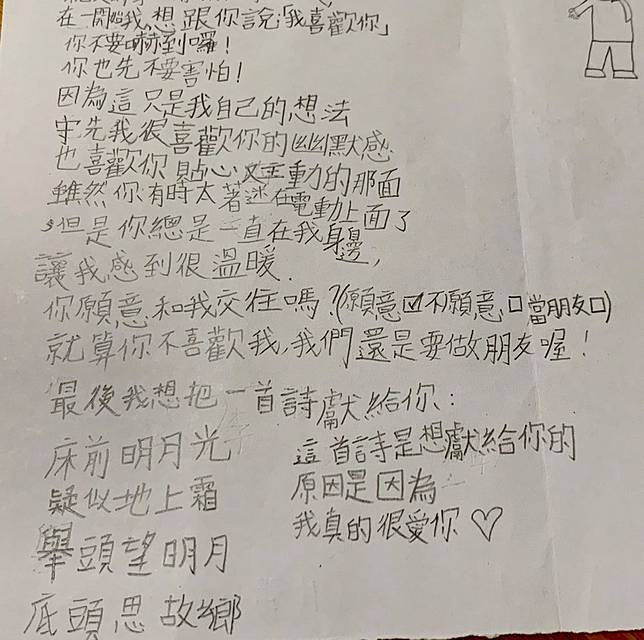 在一開始我想跟你說「我喜歡你」
你不要嚇到囉！
你也先不要害怕！
因為這只是我自己的想法
先我很喜歡你的幽默感
也喜歡你貼心又主動的那面
雖然你有時太著迷在電動上面了
,但是你總是一直在我身邊,
讓我感到很溫暖.
你願意和我交往嗎?(願意☑不願意☐當朋友☐)
就算你不喜歡我,我們還是要做朋友喔!
最後我想把一首詩獻給你:
床前明月光
疑似地上霜
舉頭望明月
底頭思故鄉
這首詩是想獻給你的
原因是因為
我真的很愛你♡